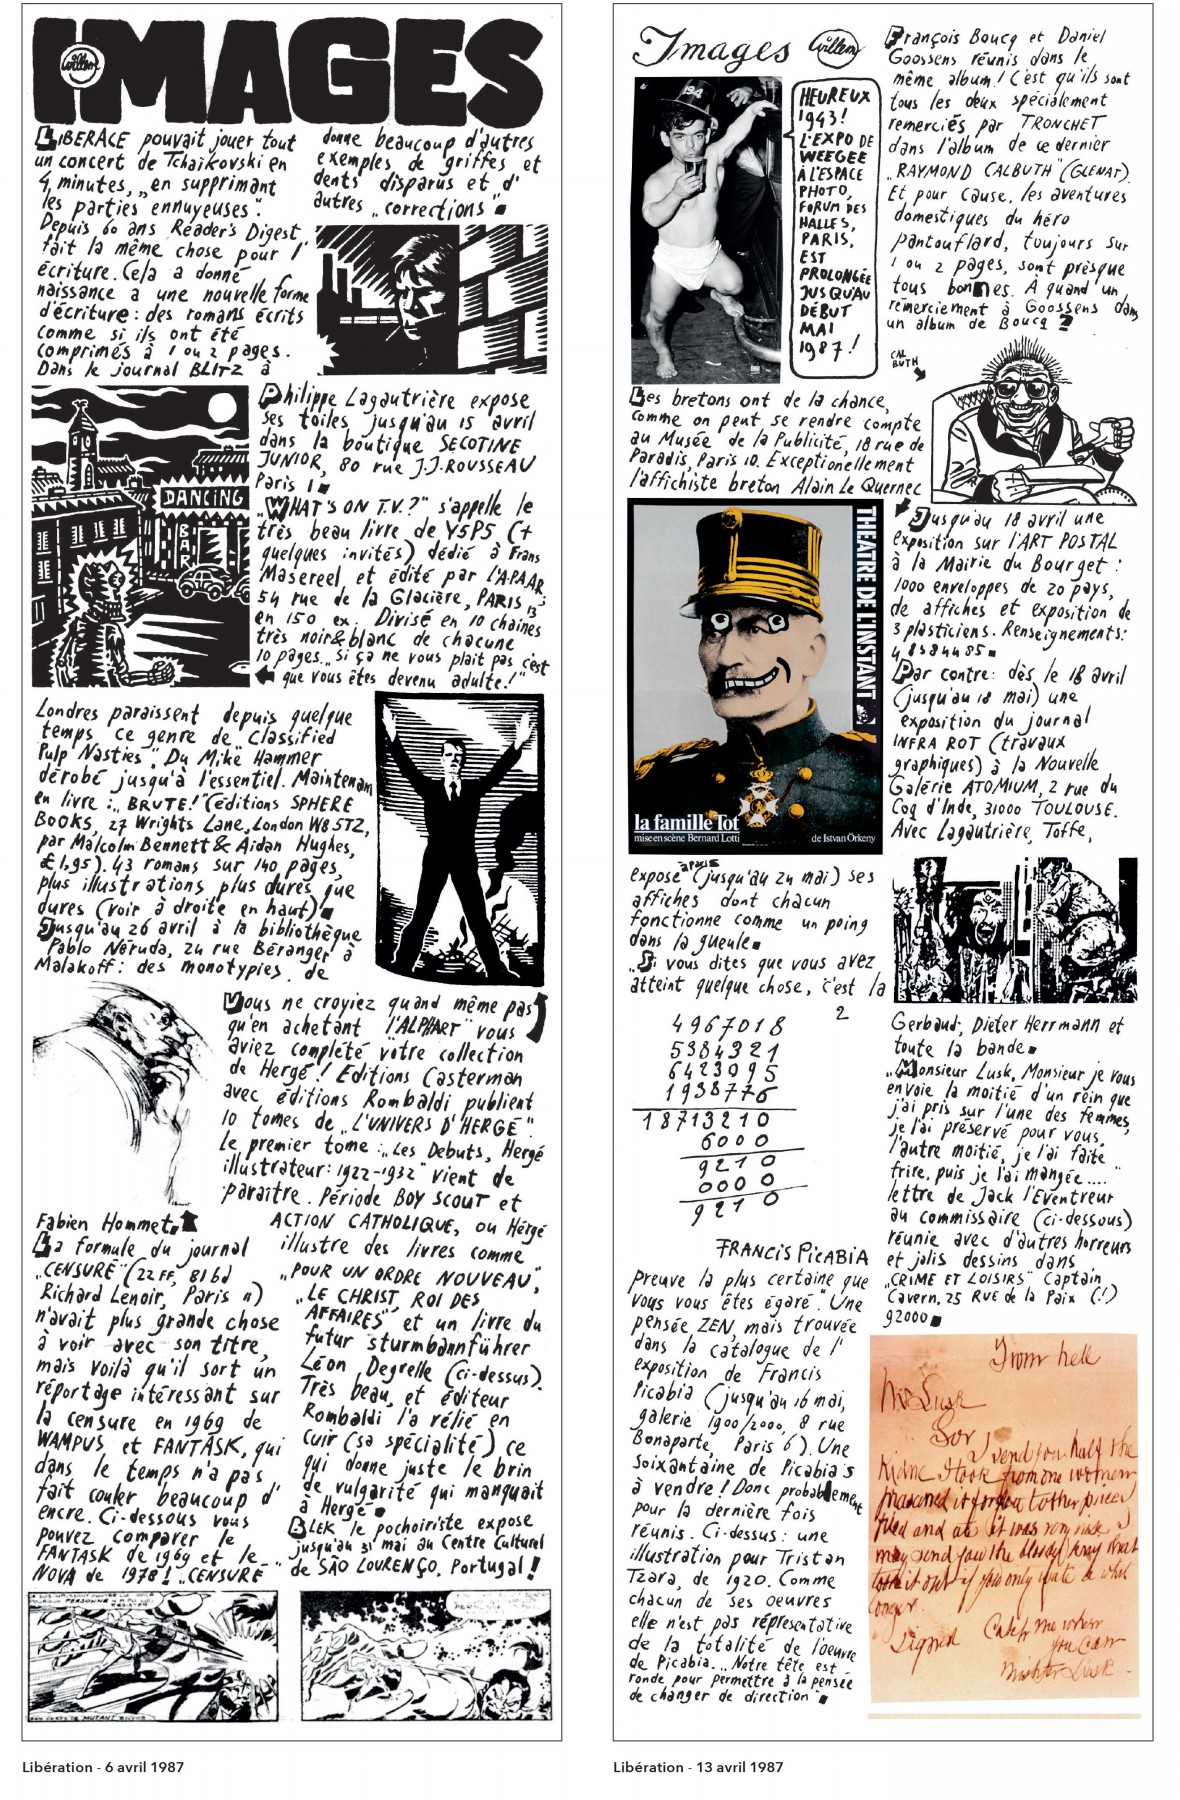 IMAGES
Willem
LIBERACE pouvait jouer tout
un concert de Tchaïkovski en
4 minutes, „en supprimant
les parties ennuyeuses".
Depuis 60 ans Reader's Digest
fait la même chose pour l'
écriture. Cela a donné
naissance a une nouvelle forme
d'écriture: des romans écrits
comme si ils ont été
comprimés à 1 ou 2 pages.
Dans le journal BLITZ à
Londres paraissent depuis quelque
temps ce genre de „classified
Pulp Nasties". Du Mike Hammer
dérobé jusqu'à l'essentiel. Maintenant
en livre: „BRUTE!" (éditions SPHERE
BOOKS, 27 Wrights Lane, London W8 5TZ,
par Malcolm Bennett & Aidan Hughes,
£1,95). 43 romans sur 140 pages,
plus illustrations plus dures que
dures (voir à droite en haut)
Jusqu'au 26 avril à la bibliothèque
Pablo Néruda, 24 rue Béranger à
Malakoff: des monotypies de
Fabien Hommet
La formule du journal
„CENSURE" (22 FF, 81 bd
Richard Lenoir, Paris 11)
n'avait plus grande chose
à voir avec son titre,
mais voilà qu'il sort un
réportage intéressant sur
la censure en 1969 de
WAMPUS et FANTASK, qui
dans le temps n'a pas
fait couler beaucoup d'
encre. Ci-dessous vous
pouvez comparer le
FANTASK de 1969 et le
NOVA de 1978! „CENSURE"
donne beaucoup d'autres
exemples de griffes et
dents disparus et d'
autres „corrections"
DANCING
BAR
Philippe Lagautrière expose
ses toiles jusqu'au 15 avril
dans la boutique SECOTINE
JUNIOR, 80 rue J.J.ROUSSEAU
Paris 1
„WHAT'S ON T.V.?" s'appelle le
très beau livre de Y5P5 (+
quelques invités) dédié à Frans
Masereel et édité par l'A.P.A.A.R.
54 rue de la Glacière, PARIS 13e
en 150 ex. Divisé en 10 chaines
très noir&blanc de chacune
10 pages. „Si ça ne vous plait pas c'est
que vous êtes devenu adulte!"
Vous ne croyiez quand même pas
qu'en achetant l'ALPHART" vous
aviez complété votre collection
de Hergé! Editions Casterman
avec éditions Rombaldi publient
10 tomes de „L'UNIVERS D'HERGÉ".
Le premier tome: „Les Debuts, Hergé
illustrateur: 1922-1932" vient de
paraître. Période BOY SCOUT et
ACTION CATHOLIQUE, ou Hergé
illustre des livres comme
„POUR UN ORDRE NOUVEAU",
„LE CHRIST, ROI DES
AFFAIRES" et un livre du
futur sturmbannführer
Léon Degrelle (ci-dessus).
Très beau, et éditeur
Rombaldi l'a rélié en
cuir (sa spécialité) ce
qui donne juste le brin
de vulgarité qui manquait
à Hergé
BLEK le pochoiriste expose
jusqu'au 31 mai au Centre Culturel
de SÃO LOURENÇO, Portugal!
PERSONNE
MUTANT
Libération - 6 avril 1987
Images
Willem
194
HEUREUX
1943!
L'EXPO DE
WEEGEE
À L'ESPACE
PHOTO,
FORUM DES
HALLES,
PARIS,
EST
PROLONGÉE
JUSQU'AU
DÉBUT
MAI
1987!
Les bretons ont de la chance,
comme on peut se rendre compte
au Musée de la Publicité, 18 rue de
Paradis, Paris 10. Exceptionellement
l'affichiste breton Alain Le Quernec
THEATRE DE L'INSTANT
la famille Tot
mise en scène Bernard Lotti
de Istvan Örkeny
expose à Paris (jusqu'au 24 mai) ses
affiches dont chacun
fonctionne comme un poing
dans la gueule
„Si vous dites que vous avez
atteint quelque chose, c'est la
2
4967018
5384321
6423095
1938776
18713210
6000
9210
0000
9210
FRANCIS PICABIA
preuve la plus certaine que
vous vous êtes égaré". Une
pensée ZEN, mais trouvée
dans la catalogue de l'
exposition de Francis
Picabia (jusqu'au 16 mai,
galerie 1900/2000, 8 rue
Bonaparte, Paris 6). Une
soixantaine de Picabia's
à vendre! Donc probablement
pour la dernière fois
réunis. Ci-dessus: une
illustration pour Tristan
Tzara, de 1920. Comme
chacun de ses oeuvres
elle n'est pas réprésentative
de la totalité de l'oeuvre
de Picabia. „Notre tête est
ronde pour permettre à la pensée
de changer de direction"
François Boucq et Daniel
Goossens réunis dans le
même album! C'est qu'ils sont
tous les deux spécialement
remerciés par TRONCHET
dans l'album de ce dernier
„RAYMOND CALBUTH" (GLENAT).
Et pour cause, les aventures
domestiques du héro
pantouflard, toujours sur
1 ou 2 pages, sont présque
tous bonnes. À quand un
rémerciement à Goossens dans
un album de Boucq?
CAL
BUTH
Jusqu'au 18 avril une
exposition sur l'ART POSTAL
à la Mairie du Bourget:
1000 enveloppes de 20 pays,
de affiches et exposition de
3 plasticiens. Renseignements:
48384485
Par contre: dès le 18 avril
(jusqu'au 18 mai) une
exposition du journal
INFRA ROT (travaux
graphiques) à la Nouvelle
Galérie ATOMIUM, 2 rue du
Coq d'Inde, 31000 TOULOUSE.
Avec Lagautrière, Toffe,
Gerbaud, Dieter Herrmann et
toute la bande
„Monsieur Lusk, Monsieur je vous
envoie la moitié d'un rein que
j'ai pris sur l'une des femmes,
je l'ai préservé pour vous,
l'autre moitié, je l'ai faite
frire, puis je l'ai mangée...."
lettre de Jack l'Eventreur
au commissaire (ci-dessous)
réunie avec d'autres horreurs
et jolis dessins dans
„CRIME ET LOISIRS" Captain
Cavern, 25 RUE de la Paix (!)
92000
From hell
Mr Lusk
Sor
I send you half the
Kidne I took from one women
prasarved it for you tother piece I
fried and ate it was very nise I
may send you the bloody knif that
took it out if you only wate a whil
longer
signed
Catch me when
you can
Mishter Lusk
Libération - 13 avril 1987